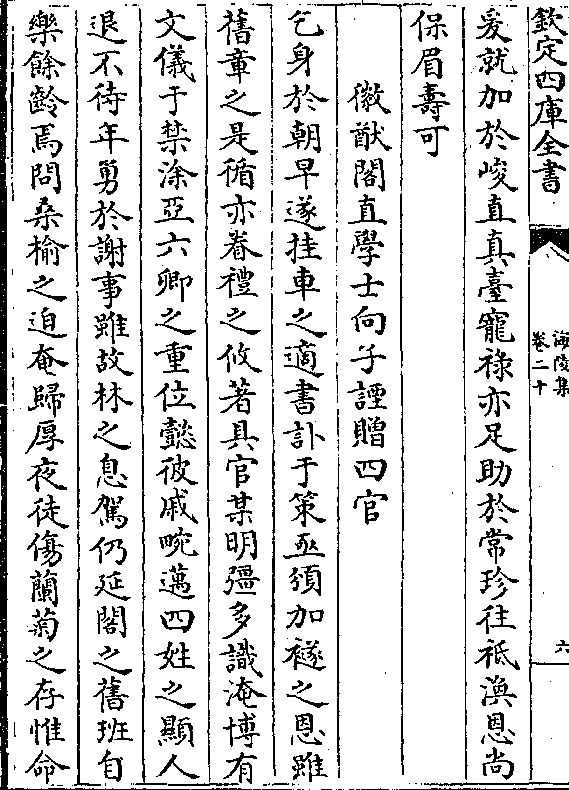 欽定四庫全書
海陵集
卷二十
六
爰就加於峻直真臺寵祿亦足助於常珍往祗渙恩尚
保眉壽可
徽猷閣直學士向子諲贈四官
乞身於朝早遂挂車之適書訃于策亟須加襚之恩雖
舊章之是循亦眷禮之攸著具官某明彊多識淹博有
文儀于禁涂亞六卿之重位懿彼戚畹邁四姓之顯人
退不待年勇於謝事雖故林之息駕仍延閣之舊班自
樂餘齡焉問桑榆之迫奄歸厚夜徒傷蘭菊之存惟命